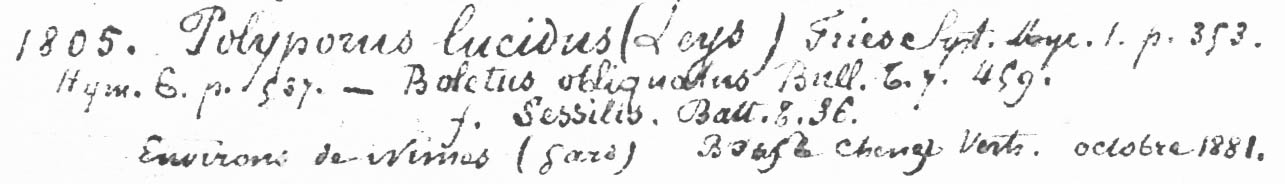 1805. Polyporus lucidus (Leys) Fries Syst. Myc. 1. p. 353.
Hym. E. p. 537. — Boletus obliquatus Bull. t. 7. 459.
f. Sessilis. Batt. t. 36.
Environs de Nimes (Gard) Chenes Verts. octobre 1881.